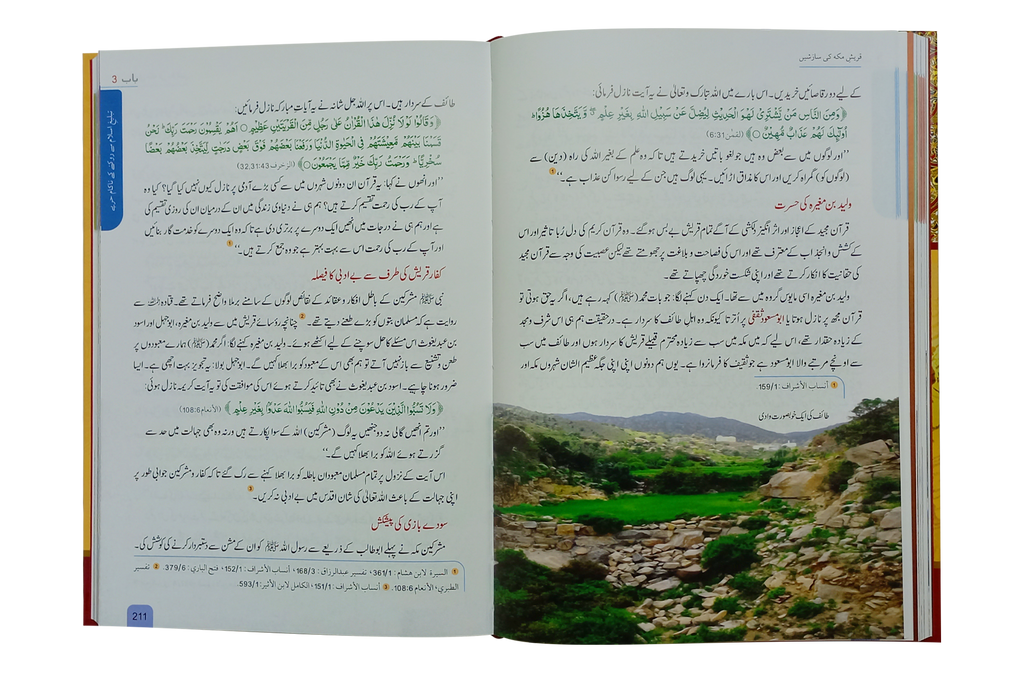 قریش مکہ کی سازشیں
کے لیے دو رقاصائیں خریدیں۔ اس بارے میں اللہ تبارک و تعالیٰ نے یہ آیت نازل فرمائی:
﴿وَمِنَ النَّاسِ مَنْ يَّشْتَرِيْ لَهْوَ الْحَدِيْثِ لِيُضِلَّ عَنْ سَبِيْلِ اللهِ بِغَيْرِ عِلْمٍ ۖ وَّيَتَّخِذَهَا هُزُوًا ۭ
اُولٰٓئِكَ لَهُمْ عَذَابٌ مُّهِيْنٌ ○﴾ (لقمٰن 6:31)
’’اور لوگوں میں سے بعض وہ ہیں جو لغو باتیں خریدتے ہیں تاکہ وہ علم کے بغیر اللہ کی راہ (دین) سے
(لوگوں کو) گمراہ کریں اور اس کا مذاق اڑائیں۔ یہی لوگ ہیں جن کے لیے رسوا کن عذاب ہے۔‘‘ 1
ولید بن مغیرہ کی حسرت
قرآن مجید کے اعجاز اور اثر انگیز دلکشی کے آگے تمام قریش بے بس ہو گئے۔ وہ قرآن کریم کی دل رُبا تاثیر اور اس
کے کشش و انجذاب کے معترف تھے اور اس کی فصاحت و بلاغت پر جھومتے تھے لیکن عصبیت کی وجہ سے قرآن مجید
کی حقانیت کا انکار کرتے تھے اور اپنی شکست خوردگی چھپاتے تھے۔
ولید بن مغیرہ اسی مایوس گروہ میں سے تھا۔ ایک دن کہنے لگا: جو بات محمد (ﷺ) کہہ رہے ہیں، اگر یہ حق ہوتی تو
قرآن مجھ پر نازل ہوتا یا ابو مسعود ثقفی پر اُترتا کیونکہ وہ اہلِ طائف کا سردار ہے۔ درحقیقت ہم ہی اس شرف و مجد
کے زیادہ حقدار تھے، اس لیے کہ میں مکہ میں سب سے زیادہ محترم قبیلے قریش کا سردار ہوں اور طائف میں سب
سے اونچے مرتبے والا ابو مسعود ہے جو ثقیف کا فرمانروا ہے۔ یوں ہم دونوں اپنی اپنی جگہ عظیم الشان شہروں مکہ اور
1 أنساب الأشراف: 159/1.
طائف کی ایک خوبصورت وادی
باب 3
تبلیغِ اسلام سے روکنے کے ناکام حربے
طائف کے سردار ہیں۔ اس پر اللہ جل شانہ نے یہ آیات مبارکہ نازل فرمائیں:
﴿وَقَالُوْا لَوْلَا نُزِّلَ هٰذَا الْقُرْاٰنُ عَلٰى رَجُلٍ مِّنَ الْقَرْيَتَيْنِ عَظِيْمٍ ○ اَهُمْ يَقْسِمُوْنَ رَحْمَتَ رَبِّكَ ۭ نَحْنُ
قَسَمْنَا بَيْنَهُمْ مَّعِيْشَتَهُمْ فِي الْحَيٰوةِ الدُّنْيَا وَرَفَعْنَا بَعْضَهُمْ فَوْقَ بَعْضٍ دَرَجٰتٍ لِّيَتَّخِذَ بَعْضُهُمْ بَعْضًا
سُخْرِيًّا ۭ وَرَحْمَتُ رَبِّكَ خَيْرٌ مِّمَّا يَجْمَعُوْنَ ○﴾ (الزخرف 32,31:43)
’’اور انھوں نے کہا: یہ قرآن ان دونوں شہروں میں سے کسی بڑے آدمی پر نازل کیوں نہیں کیا گیا؟ کیا وہ
آپ کے رب کی رحمت تقسیم کرتے ہیں؟ ہم ہی نے دنیاوی زندگی میں ان کے درمیان ان کی روزی تقسیم کی
ہے اور ہم ہی نے درجات میں انھیں ایک دوسرے پر برتری دی ہے تاکہ وہ ایک دوسرے کو خدمت گار بنائیں
اور آپ کے رب کی رحمت اس سے بہت بہتر ہے جو وہ جمع کرتے ہیں۔‘‘ 1
کفار قریش کی طرف سے بے ادبی کا فیصلہ
نبی ﷺ مشرکین کے باطل افکار و عقائد کے نقائص لوگوں کے سامنے برملا واضح فرماتے تھے۔ قتادہ سے
روایت ہے کہ مسلمان بتوں کو بڑے طعنے دیتے تھے۔ 2 چنانچہ رؤسائے قریش میں سے ولید بن مغیرہ، ابوجہل اور اسود
بن عبد یغوث اس مسئلے کا حل سوچنے کے لیے اکٹھے ہوئے۔ ولید بن مغیرہ کہنے لگا: اگر محمد (ﷺ) ہمارے معبودوں پر
طعن و تشنیع سے باز نہیں آتے تو ہم بھی اس کے معبود کو برا بھلا کہیں گے۔ ابوجہل بولا: یہ تجویز بہت اچھی ہے۔ ایسا
ضرور ہونا چاہیے۔ اسود بن عبد یغوث نے بھی تائید کرتے ہوئے اس کی موافقت کی تو یہ آیت کریمہ نازل ہوئی:
﴿وَلَا تَسُبُّوا الَّذِيْنَ يَدْعُوْنَ مِنْ دُوْنِ اللهِ فَيَسُبُّوا اللهَ عَدْوًۢا بِغَيْرِ عِلْمٍ ﴾ (الأنعام 108:6)
’’اور تم انھیں گالی نہ دو جنھیں یہ لوگ (مشرکین) اللہ کے سوا پکارتے ہیں ورنہ وہ بھی جہالت میں حد سے
گزرتے ہوئے اللہ کو برا بھلا کہیں گے۔‘‘
اس آیت کے نزول پر تمام مسلمان معبودانِ باطلہ کو برا بھلا کہنے سے رک گئے تاکہ کفار و مشرکین جوابی طور پر
اپنی جہالت کے باعث اللہ تعالیٰ کی شان اقدس میں بے ادبی نہ کریں۔ 3
سودے بازی کی پیشکش
مشرکین مکہ نے پہلے ابوطالب کے ذریعے سے رسول اللہ ﷺ کو ان کے مشن سے دستبردار کرنے کی کوشش کی۔
1 السيرة لابن هشام: 361/1، تفسير عبدالرزاق: 168/3، أنساب الأشراف: 152/1، فتح الباري: 379/6. 2 تفسير
الطبري، الأنعام 108:6. 3 أنساب الأشراف: 151/1، الكامل لابن الأثير: 593/1.
211